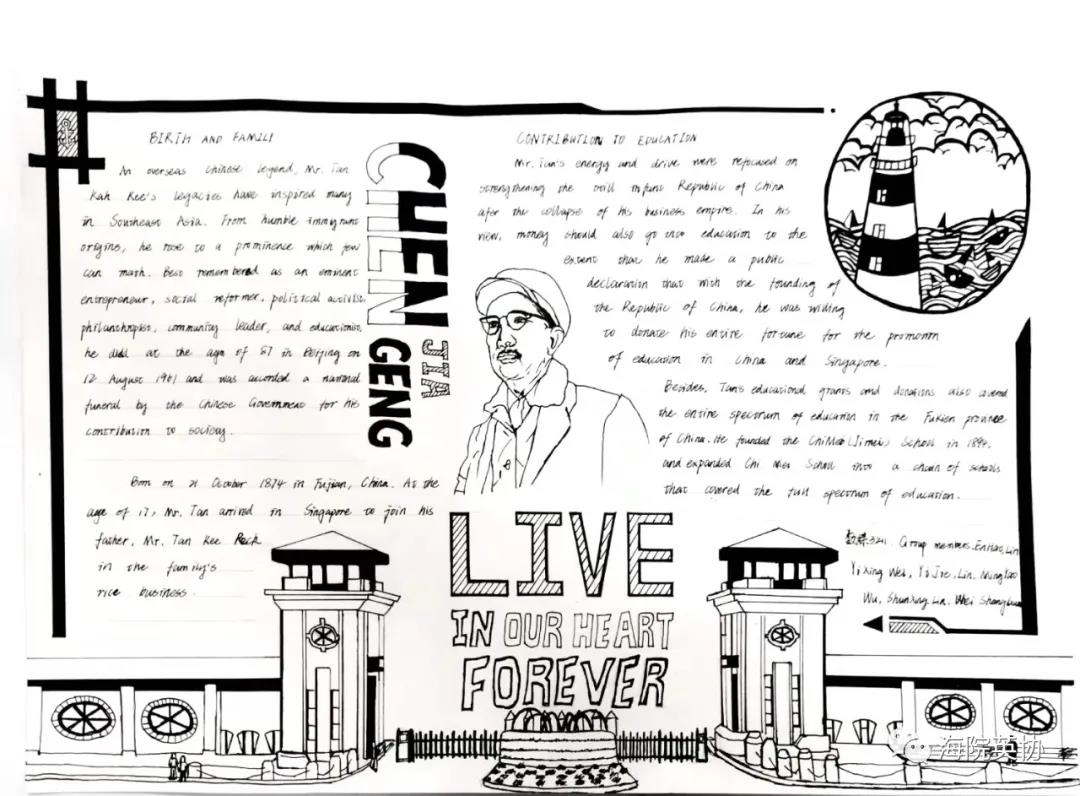 BIRTH AND FAMILY
An overseas Chinese legend, Mr. Tan
Kah Kee's legacies have inspired many
in Southeast Asia. From humble immigrant
origins, he rose to a prominence which few
can math. Best remembered as an eminent
entrepreneur, social reformer, political activist,
philanthropist, community leader, and educationist,
he died at the age of 87 in Beijing on
12 August 1961 and was accorded a national
funeral by the Chinese Government for his
contribution to society.
Born on 21 October 1874 in Fujian, China. At the
age of 17, Mr. Tan arrived in Singapore to join his
father, Mr. Tan Kee Peck
in the family's
rice business.
CHEN
CHEN
JIA
GENG
CONTRIBUTION TO EDUCATION
Mr. Tan's energy and drive were refocused on
strengthening the still infant Republic of China
after the collapse of his business empire. In his
view, money should also go into education to the
extent that he made a public
declaration that with the founding of
the Republic of China, he was willing
to donate his entire fortune for the promotion
of education in China and Singapore.
Besides, Tan's educational grants and donations also covered
the entire spectrum of education in the Fukien province
of China. He founded the ChiMei (Jimei) School in 1894.
and expanded Chi Mei School into a chain of schools
that covered the full spectrum of education.
3241. Group members. EnHao, Lin
YiXing Wei, YiJie, Lin. MingHao
Wu, ShunXing Lin. Wei
LIVE
IN OUR HEART
FOREVER
海院英协